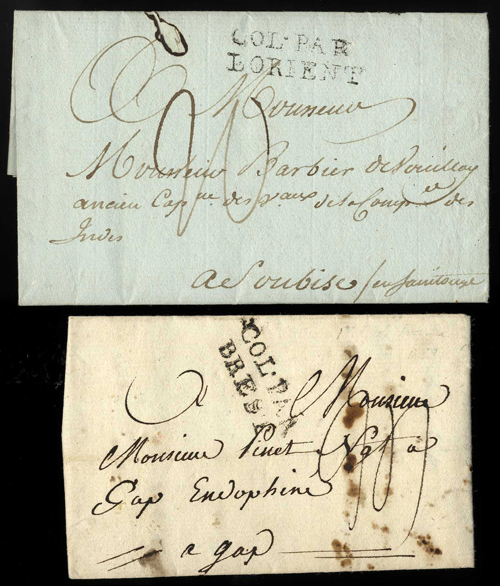 COL·PAR
LORIENT
A Monsieur
Monsieur Barbier de
ancien Cap.ne des V.aux de la Comp.e des
Indes
a Soubise / en saintonge
COL·PAR
BREST
A Monsieur
Monsieur Pinet Ngt a
Gap Endophiné
a gap